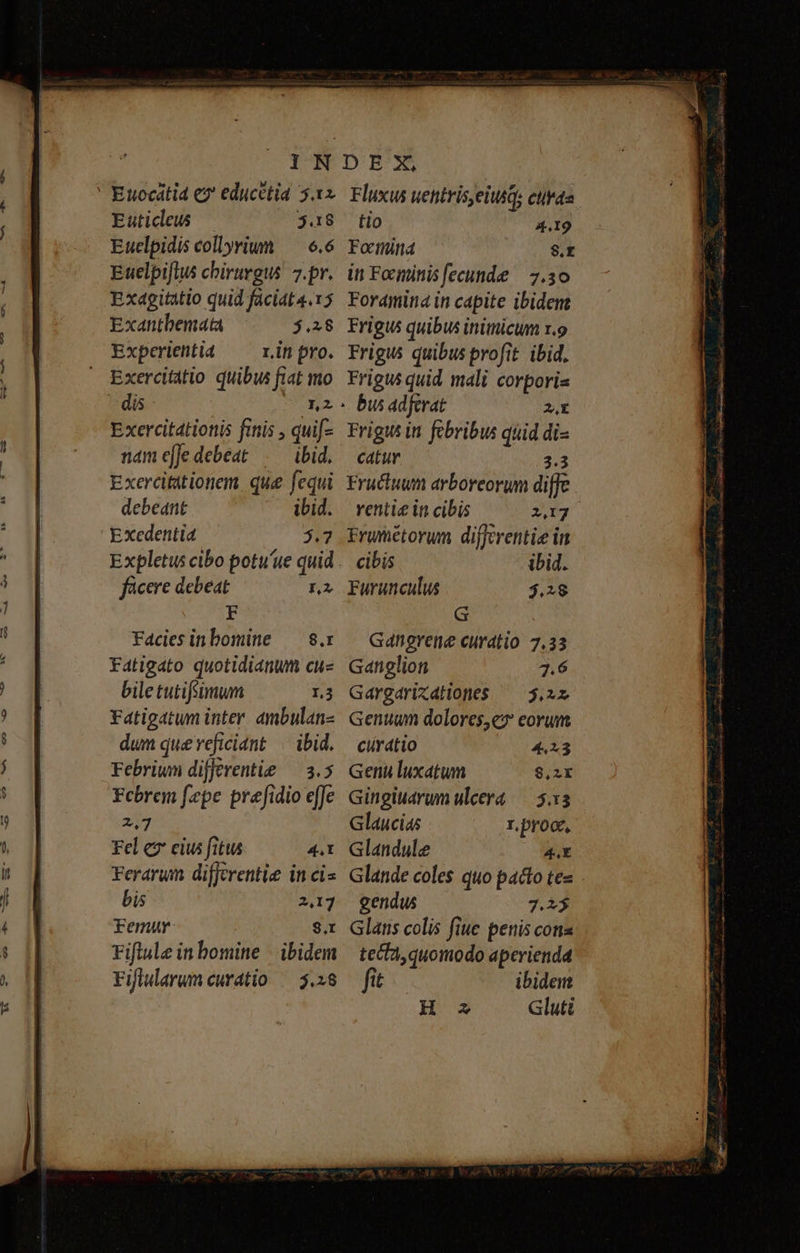 INDEX,
Euocātia &amp; educētia 5.12
Euticleus 5.18
Euelpidis collyrium 6.6
Euelpiſtus chirurgus 7.pr.
Exagitatio quid faciat 4.15
Exanthemata 5.28
Experientia 1.in pro.
Exercitatio quibus fiat mo
dis 1,2
Exercitationis finis, quiſ=
nam eſſe debeat ibid.
Exercitationem quæ ſequi
debeant ibid.
Exedentia 5.7
Expletus cibo potu'ue quid
facere debeat 1,2
F
Facies in homine 8.1
Fatigato quotidianum cu=
bile tutiſsimum 1.3
Fatigatum inter ambulan=
dum quæ reficiant ibid.
Febrium differentiæ 3.5
Febrem ſæpe præſidio eſſe
2.7
Fel &amp; eius ſitus 4.1
Ferarum differentiæ in ci=
bis 2.17
Femur 8.1
Fiſtulæ in homine ibidem
Fiſtularum curatio 5.28
Fluxus uentris, eiusq; cura=
tio 4.19
Fœmina 8.1
in Fœminis fecundæ 7.30
Foramina in capite ibidem
Frigus quibus inimicum 1.9
Frigus quibus profit ibid.
Frigus quid mali corpori=
bus adferat 2,1
Frigus in febribus quid di=
catur 3.3
Fructuum arboreorum diffe
rentiæ in cibis 2,17
Frumētorum differentiæ in
cibis ibid.
Furunculus 5,28
G
Gangrenæ curatio 7.33
Ganglion 7.6
Gargarizationes 5,22
Genuum dolores, &amp; eorum
curatio 4,23
Genu luxatum 8,21
Gingiuarum ulcera 5.13
Glaucias 1.prooe,
Glandulæ 4.1
Glande coles quo pacto te=
gendus 7.25
Glans colis ſiue penis con=
tecta, quomodo aperienda
ſit ibidem
H 2 Gluti